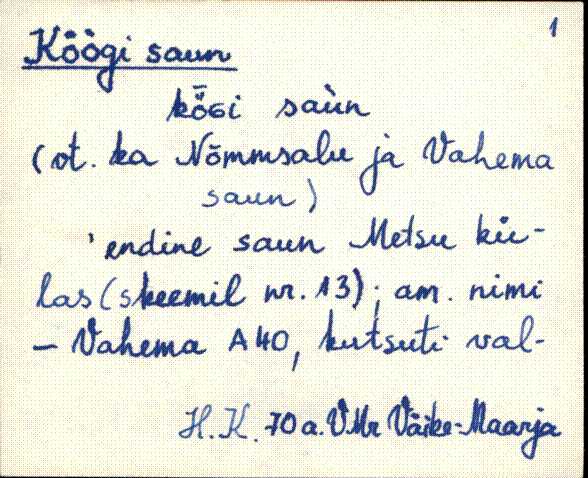 1
Köögi saun
kȫGi saùn
(vt. ka Nõmmsalu ja Vahema
saun)
'endine saun Metsu kü-
las (skeemil nr. 13); am. nimi
- Vahema A40, kutsuti val-
H.K. 70 a. VMr Väike-Maarja